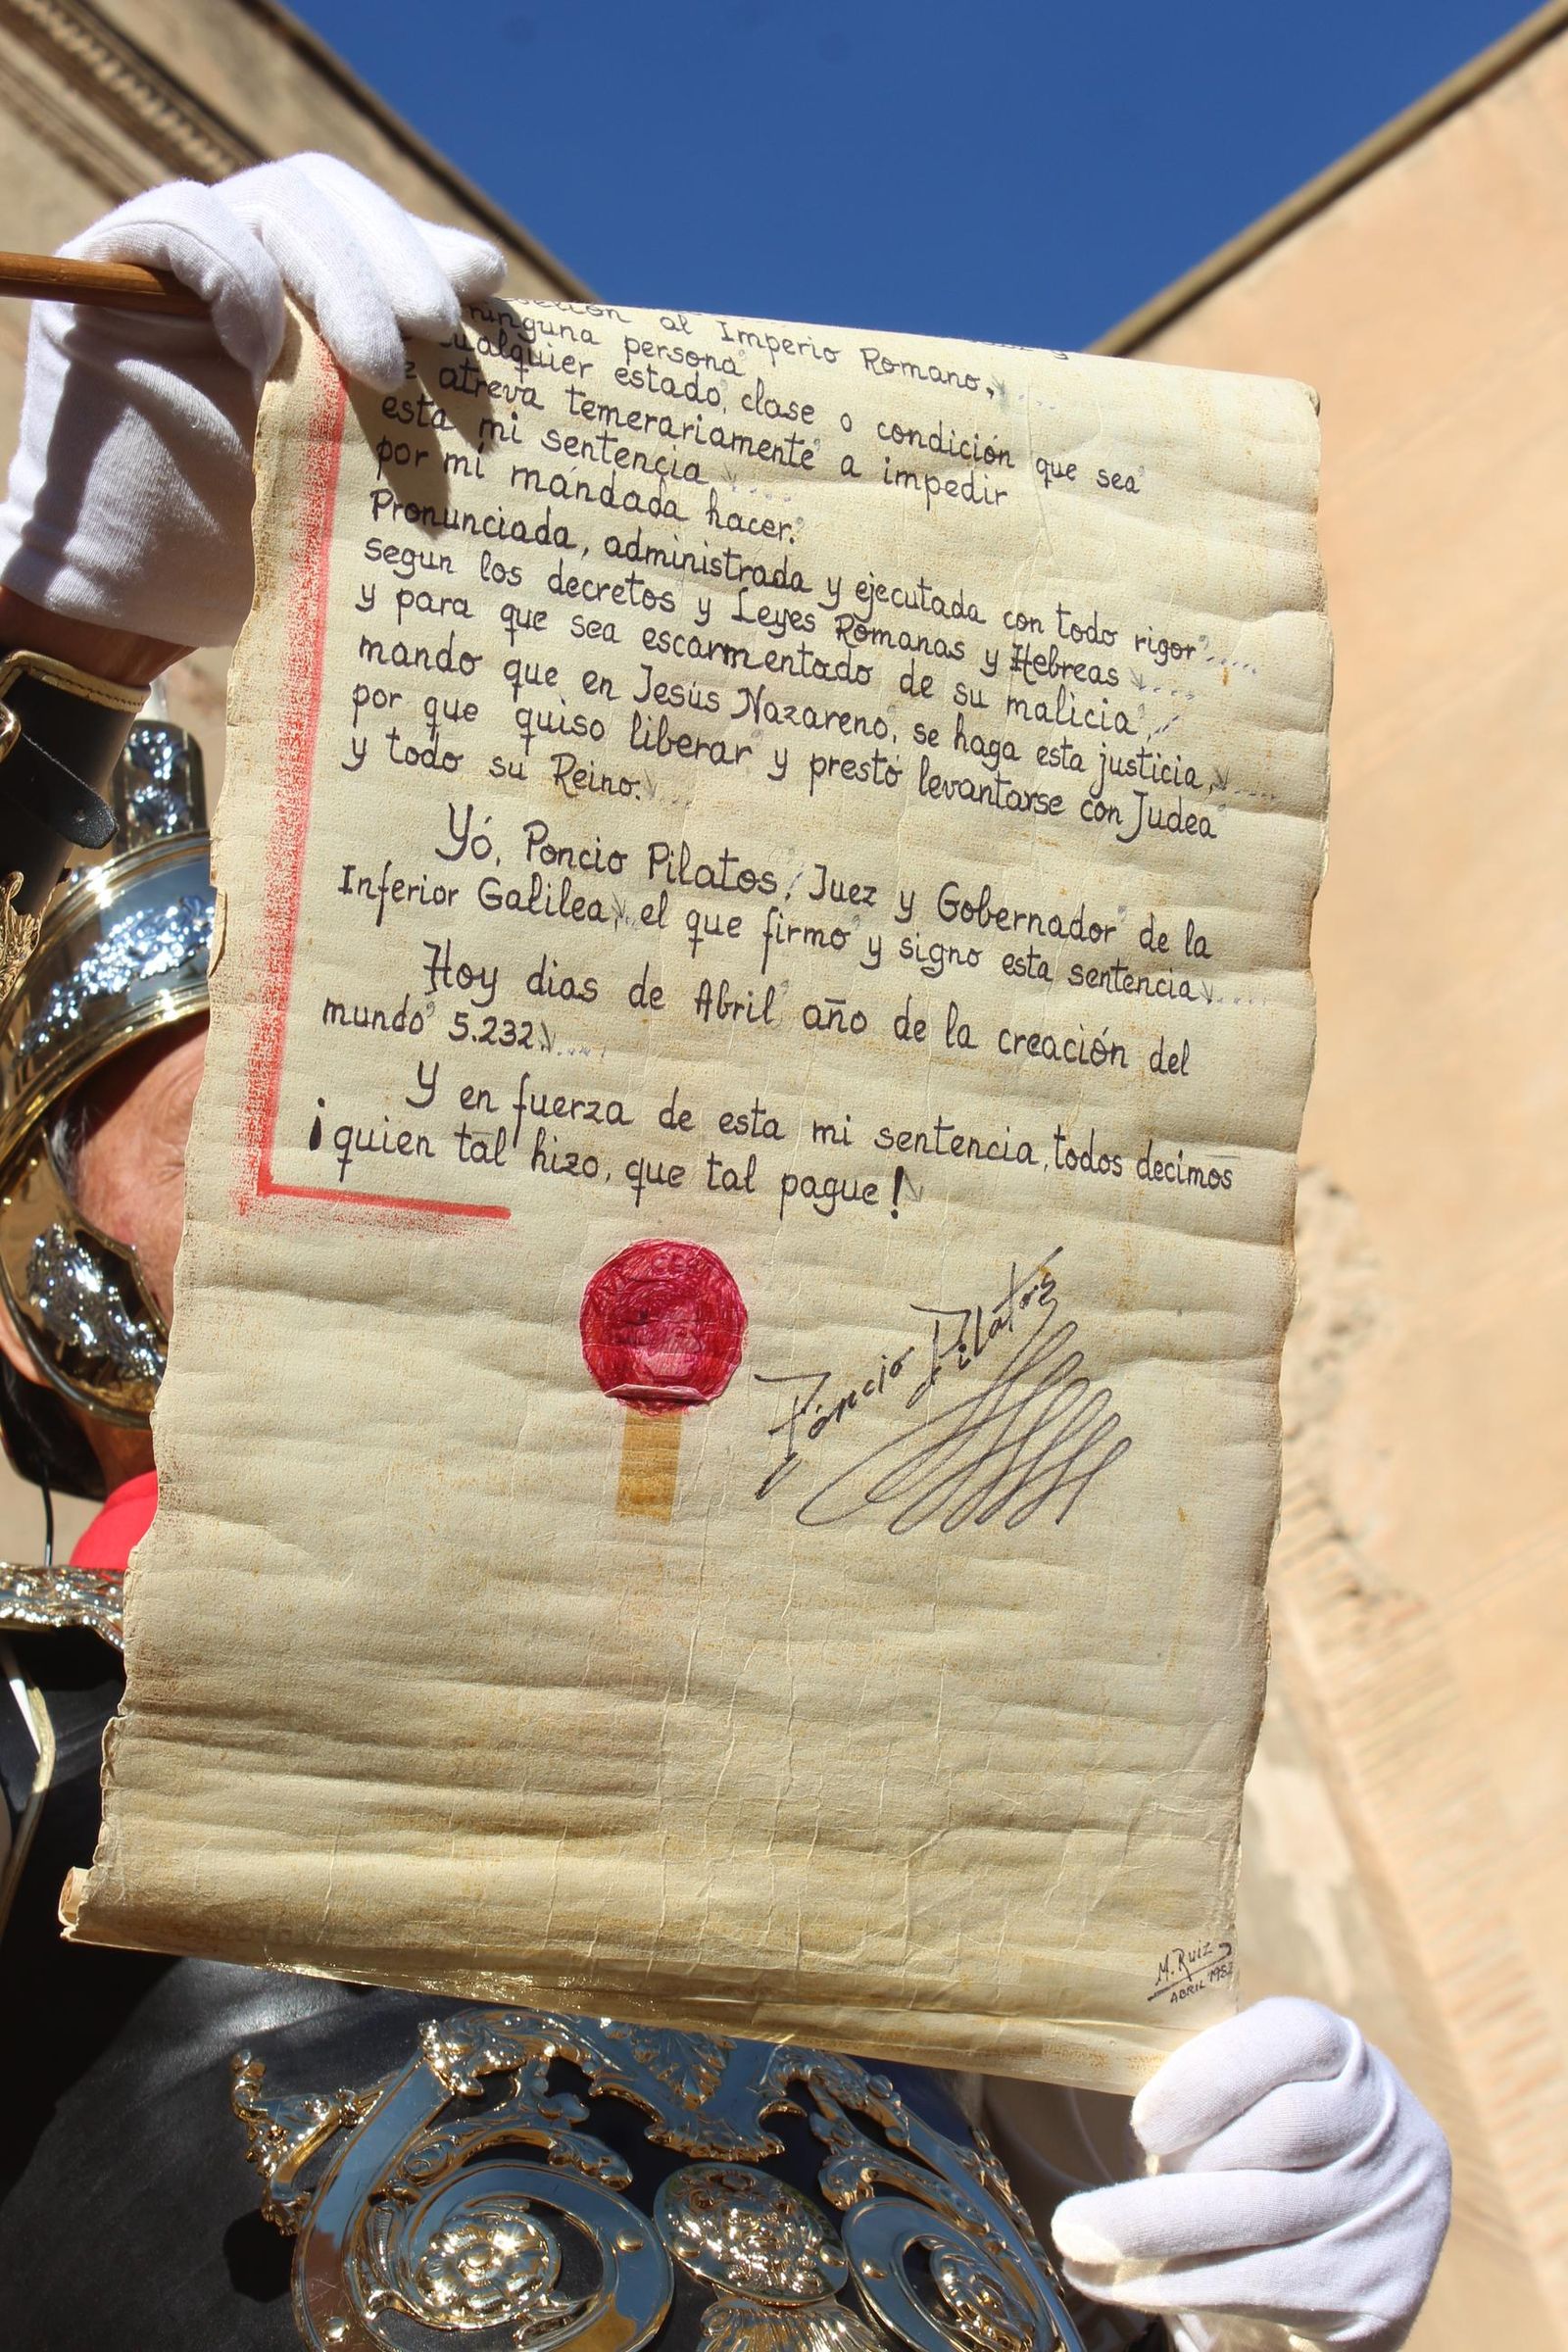 al Imperio Romano,
ninguna persona
cualquier estado, clase o condición que sea
atreva temerariamente a impedir
esta mi sentencia
por mi mándada hacer.
Pronunciada, administrada y ejecutada con todo rigor
segun los decretos y Leyes Romanas y Hebreas
y para que sea escarmentado de su malicia,
mando que en Jesús Nazareno, se haga esta justicia,
por que quiso liberar y prestó levantarse con Judea
y todo su Reino.
Yó, Poncio Pilatos, Juez y Gobernador de la
Inferior Galilea, el que firmo y signo esta sentencia
Hoy dias de Abril año de la creación del
mundo 5.232
Y en fuerza de esta mi sentencia, todos decimos
¡quien tal hizo, que tal pague!
Poncio Pilatos
M. Ruiz
ABRIL